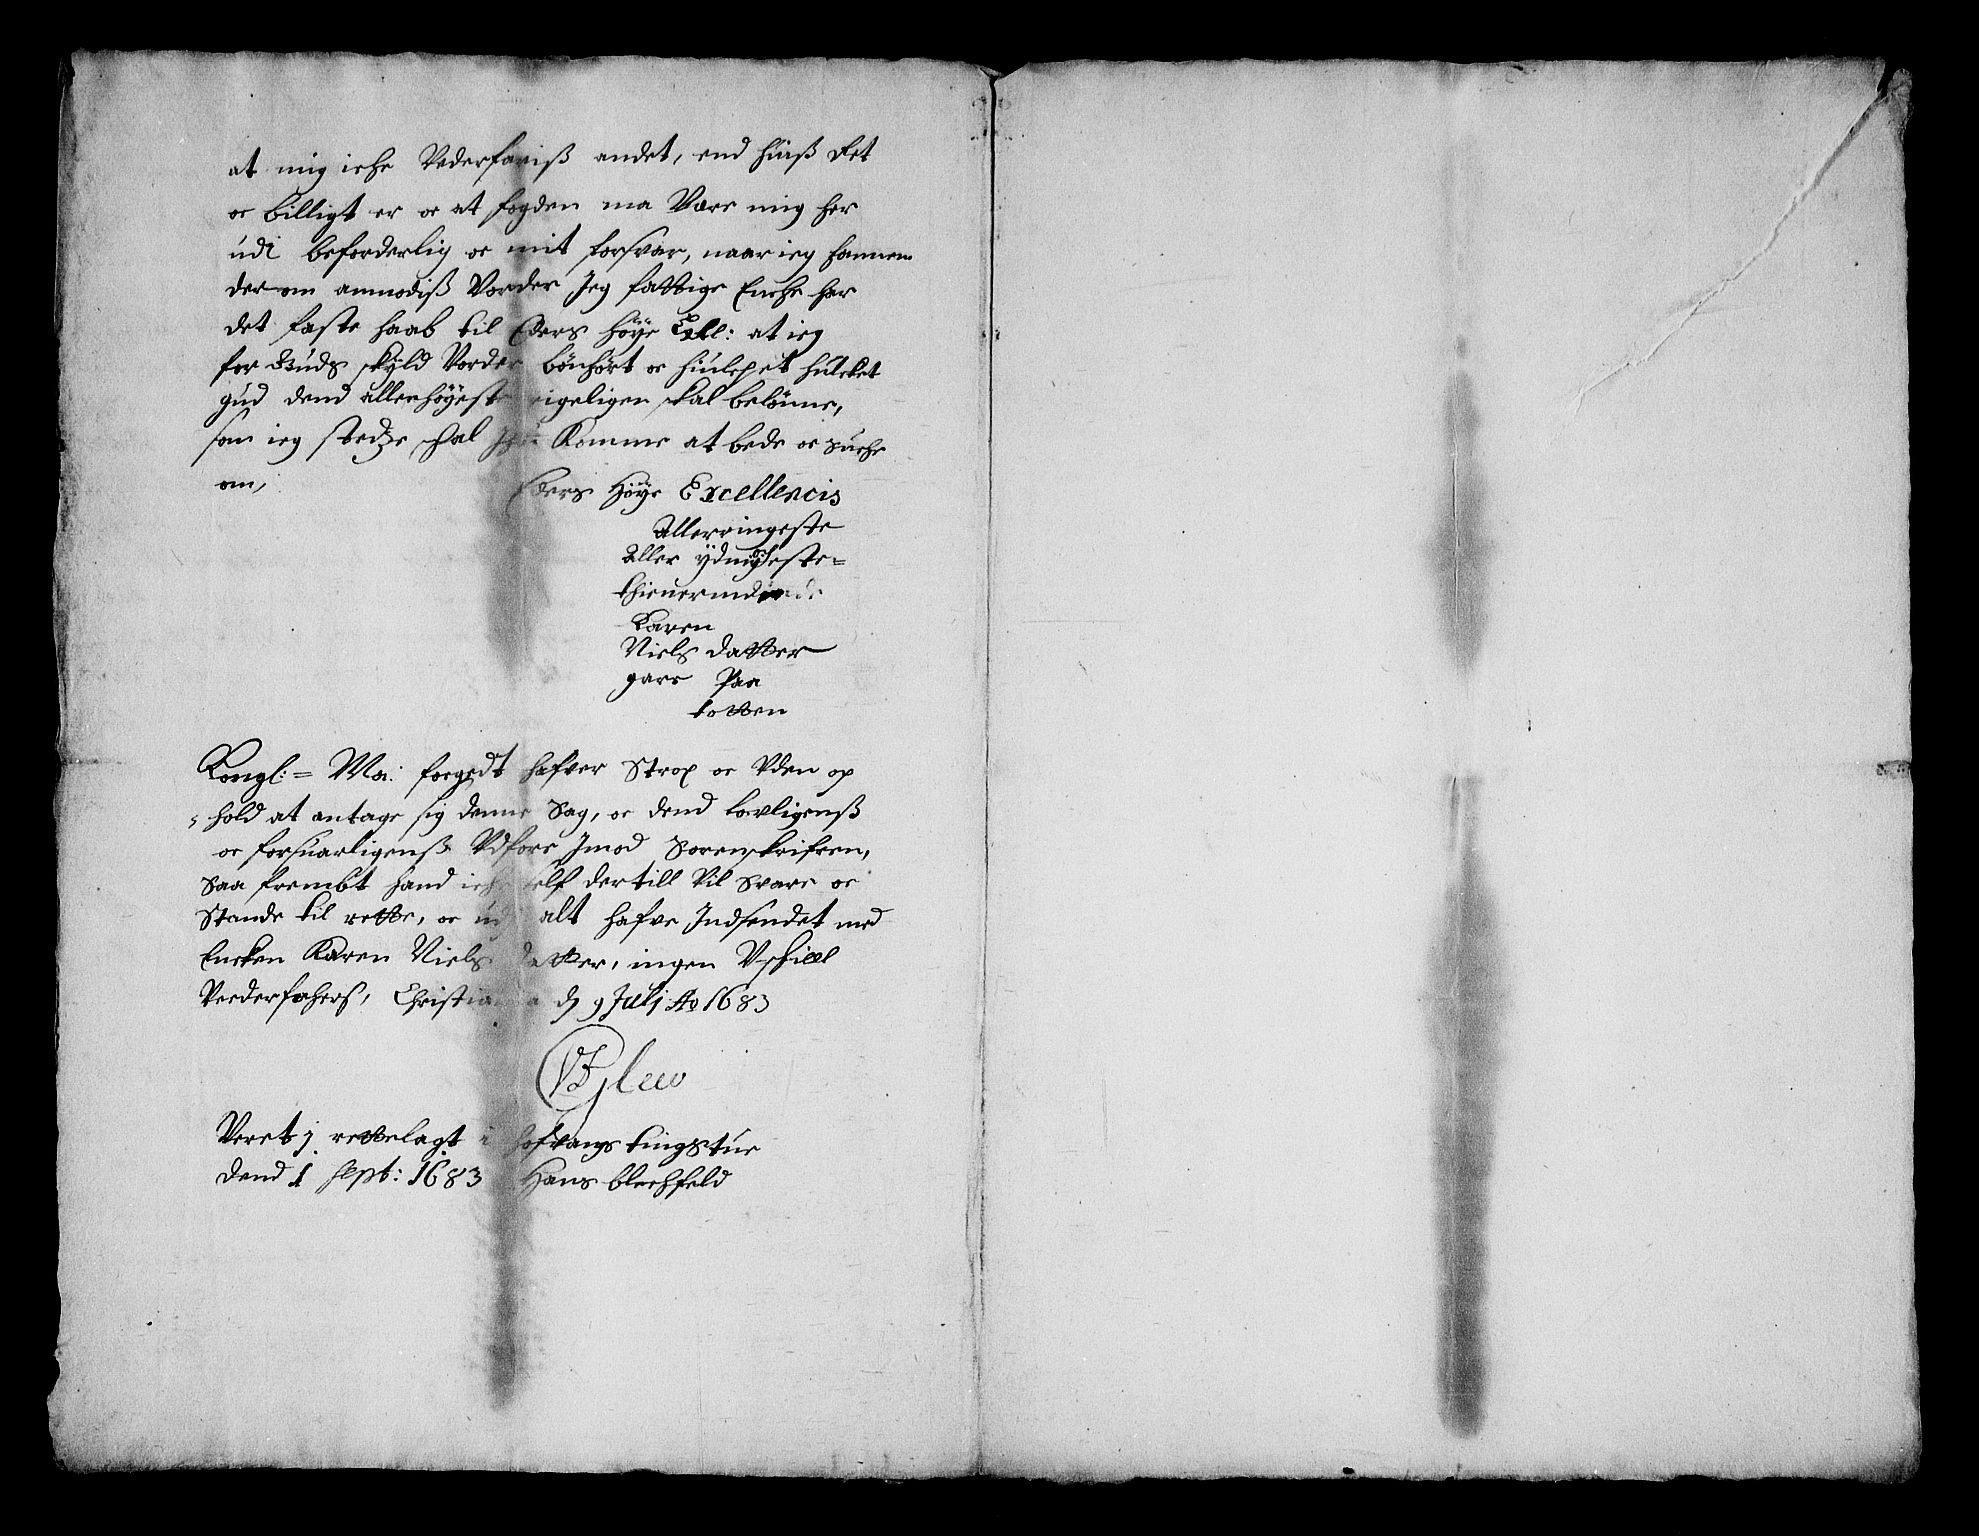 at mig iche Vederfariß andet, end huaß det
oc billigt er oc at fogden ma Være mig her
udi beforderlig oc mit forsvar, naar ieg hannem
der om anmodiß Vorder Jeg fattige Enche har
det faste haab til Eders höye Exell: at ieg
for Guds skyld Vorder bönhört oc hiulpet huilcket
gud dend allerhöyeste rigeligen skal belönne,
som ieg stedze schal Komme at bede oc sucke
om,
Eders Höye Excellencis
Allerringeste
Aller ydmygeste
thienerinde
Karen
Niels datter
gare Paa
totten
Kongl: Ma: foegedt hafver Strax oc Uden op
hold at antage sig denne Sag, oc dend lovligenß
oc forsuarligenß Udföre Jmod Sorenskrifren,
Saa frembt hand iche self dertill Vil Svare oc
Stande til rette, oc udj alt hafve Indseendet med
Encken Karen Niels datter, ingen Uschiell
Veederfahers, Christiania d 9 Julj Ao 1683
Veret j rettelagt i hofvangs tingstue
dend 1 sept: 1683 Hans blechfeld